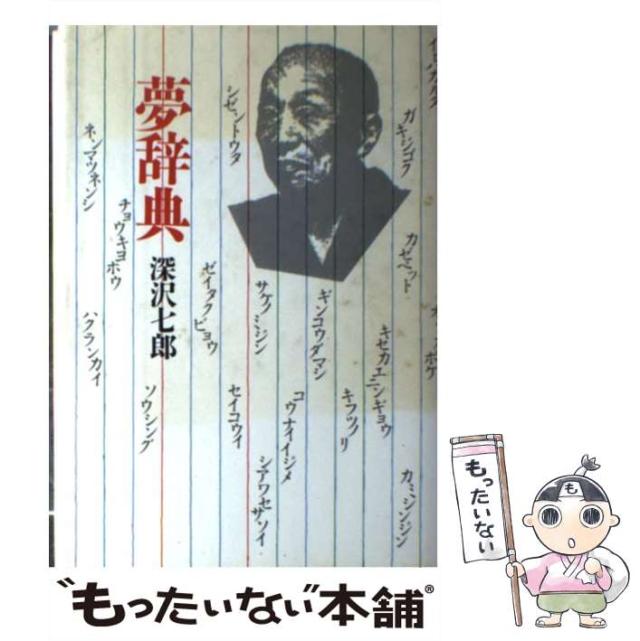 夢辞典
深沢七郎
ガキジゴク
シゼントウタ
ネンマツネンシ
カセット
チョウキヨホウ
ゼイタクビョウ
サケノミジン
ギンコウダマシ
キセカエニンギョウ
ハクランカイ
ソウシング
セイコウイ
コウナイイジメ
キフツノリ
シアワセサソイ
カミシンジン
もったいない
も
"もったいない本舗®